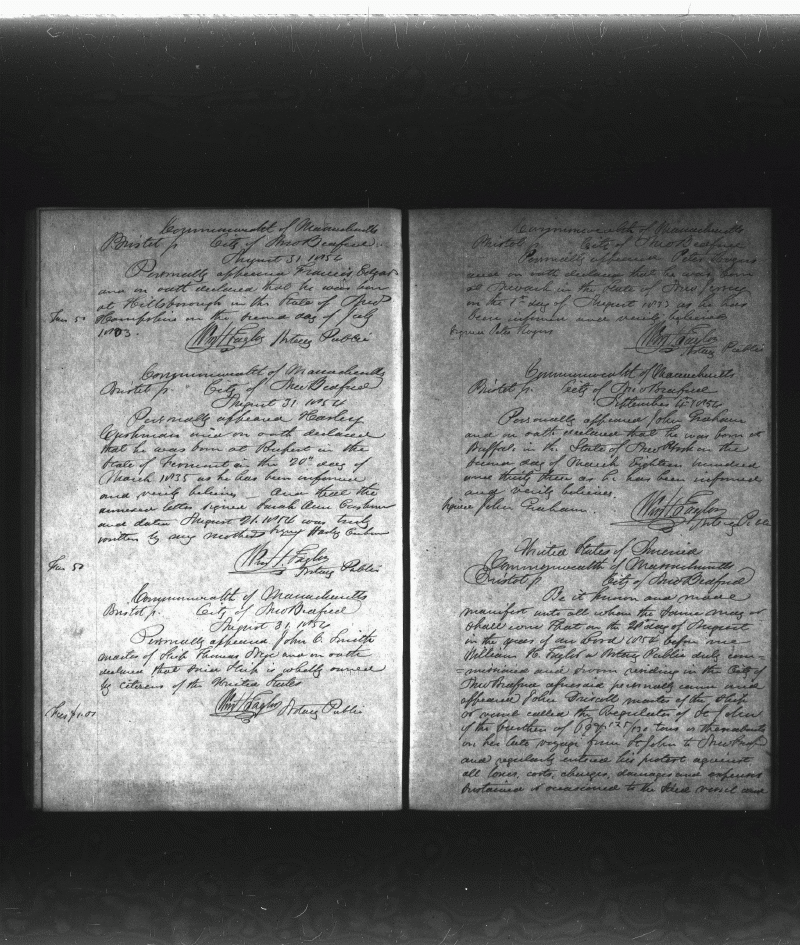 Commonwealth of Massachusetts
Bristol ss. City of New Bedford
August 31 1854
Personally appeared Francis Edgar
and on oath declared that he was born
at Hillsborough in the State of New
Fees 50 Hampshire on the second day of July
1803.
Wm H Taylor Notary Public
Commonwealth of Massachusetts
Bristol ss. City of New Bedford
August 31 1854
Personally appeared Harley
Cushman and on oath declared
that he was born at Rupert in the
State of Vermont on the 20th day of
March 1835 as he has been informed
and verily believes And that the
annexed letter signed Sarah Ann Cushman
and dated August 21 1854 was truly
written by my mother Harley Cushman
Wm H. Taylor
Fees 50 Notary Public
Commonwealth of Massachusetts
Bristol ss. City of New Bedford
August 31, 1854
Personally appeared John C. Smith
master of Ship Thomas and on oath
declared that said Ship is wholly owned
by citizens of the United States
Wm H Taylor Notary Public
Fees $1.00
Commonwealth of Massachusetts
Bristol ss. City of New Bedford
Personally appeared Peter Rogers
and on oath declared that he was born
at Newark in the State of New Jersey
on the day of August 1833 as he has
been informed and verily believes
signed Peter Rogers
Wm H Taylor
Notary Public
Commonwealth of Massachusetts
Bristol ss. City of New Bedford
September 1854
Personally appeared John Graham
and on oath declared that he was born at
Buffalo in the State of New York on the
second day of March Eighteen hundred
and thirty three as he has been informed
and verily believes.
signed John Graham. Wm H Taylor
Notary Public
United States of America
Commonwealth of Massachusetts
Bristol ss City of New Bedford
Be it known and made
manifest unto all whom the same may or
shall come that on the day of August
in the year of our Lord 1854 before me
William H. Taylor a Notary Public duly com
=missioned and sworn residing in the City of
New Bedford aforesaid personally came and
appeared John Driscoll master of the Ship
or vessel called the Regulator of St John
of the burthen of tons or thereabouts
on his late voyage from St John to New York
and regularly entered his protest against
all losses, costs, charges, damages and expenses
sustained or occasioned to the said vessel and